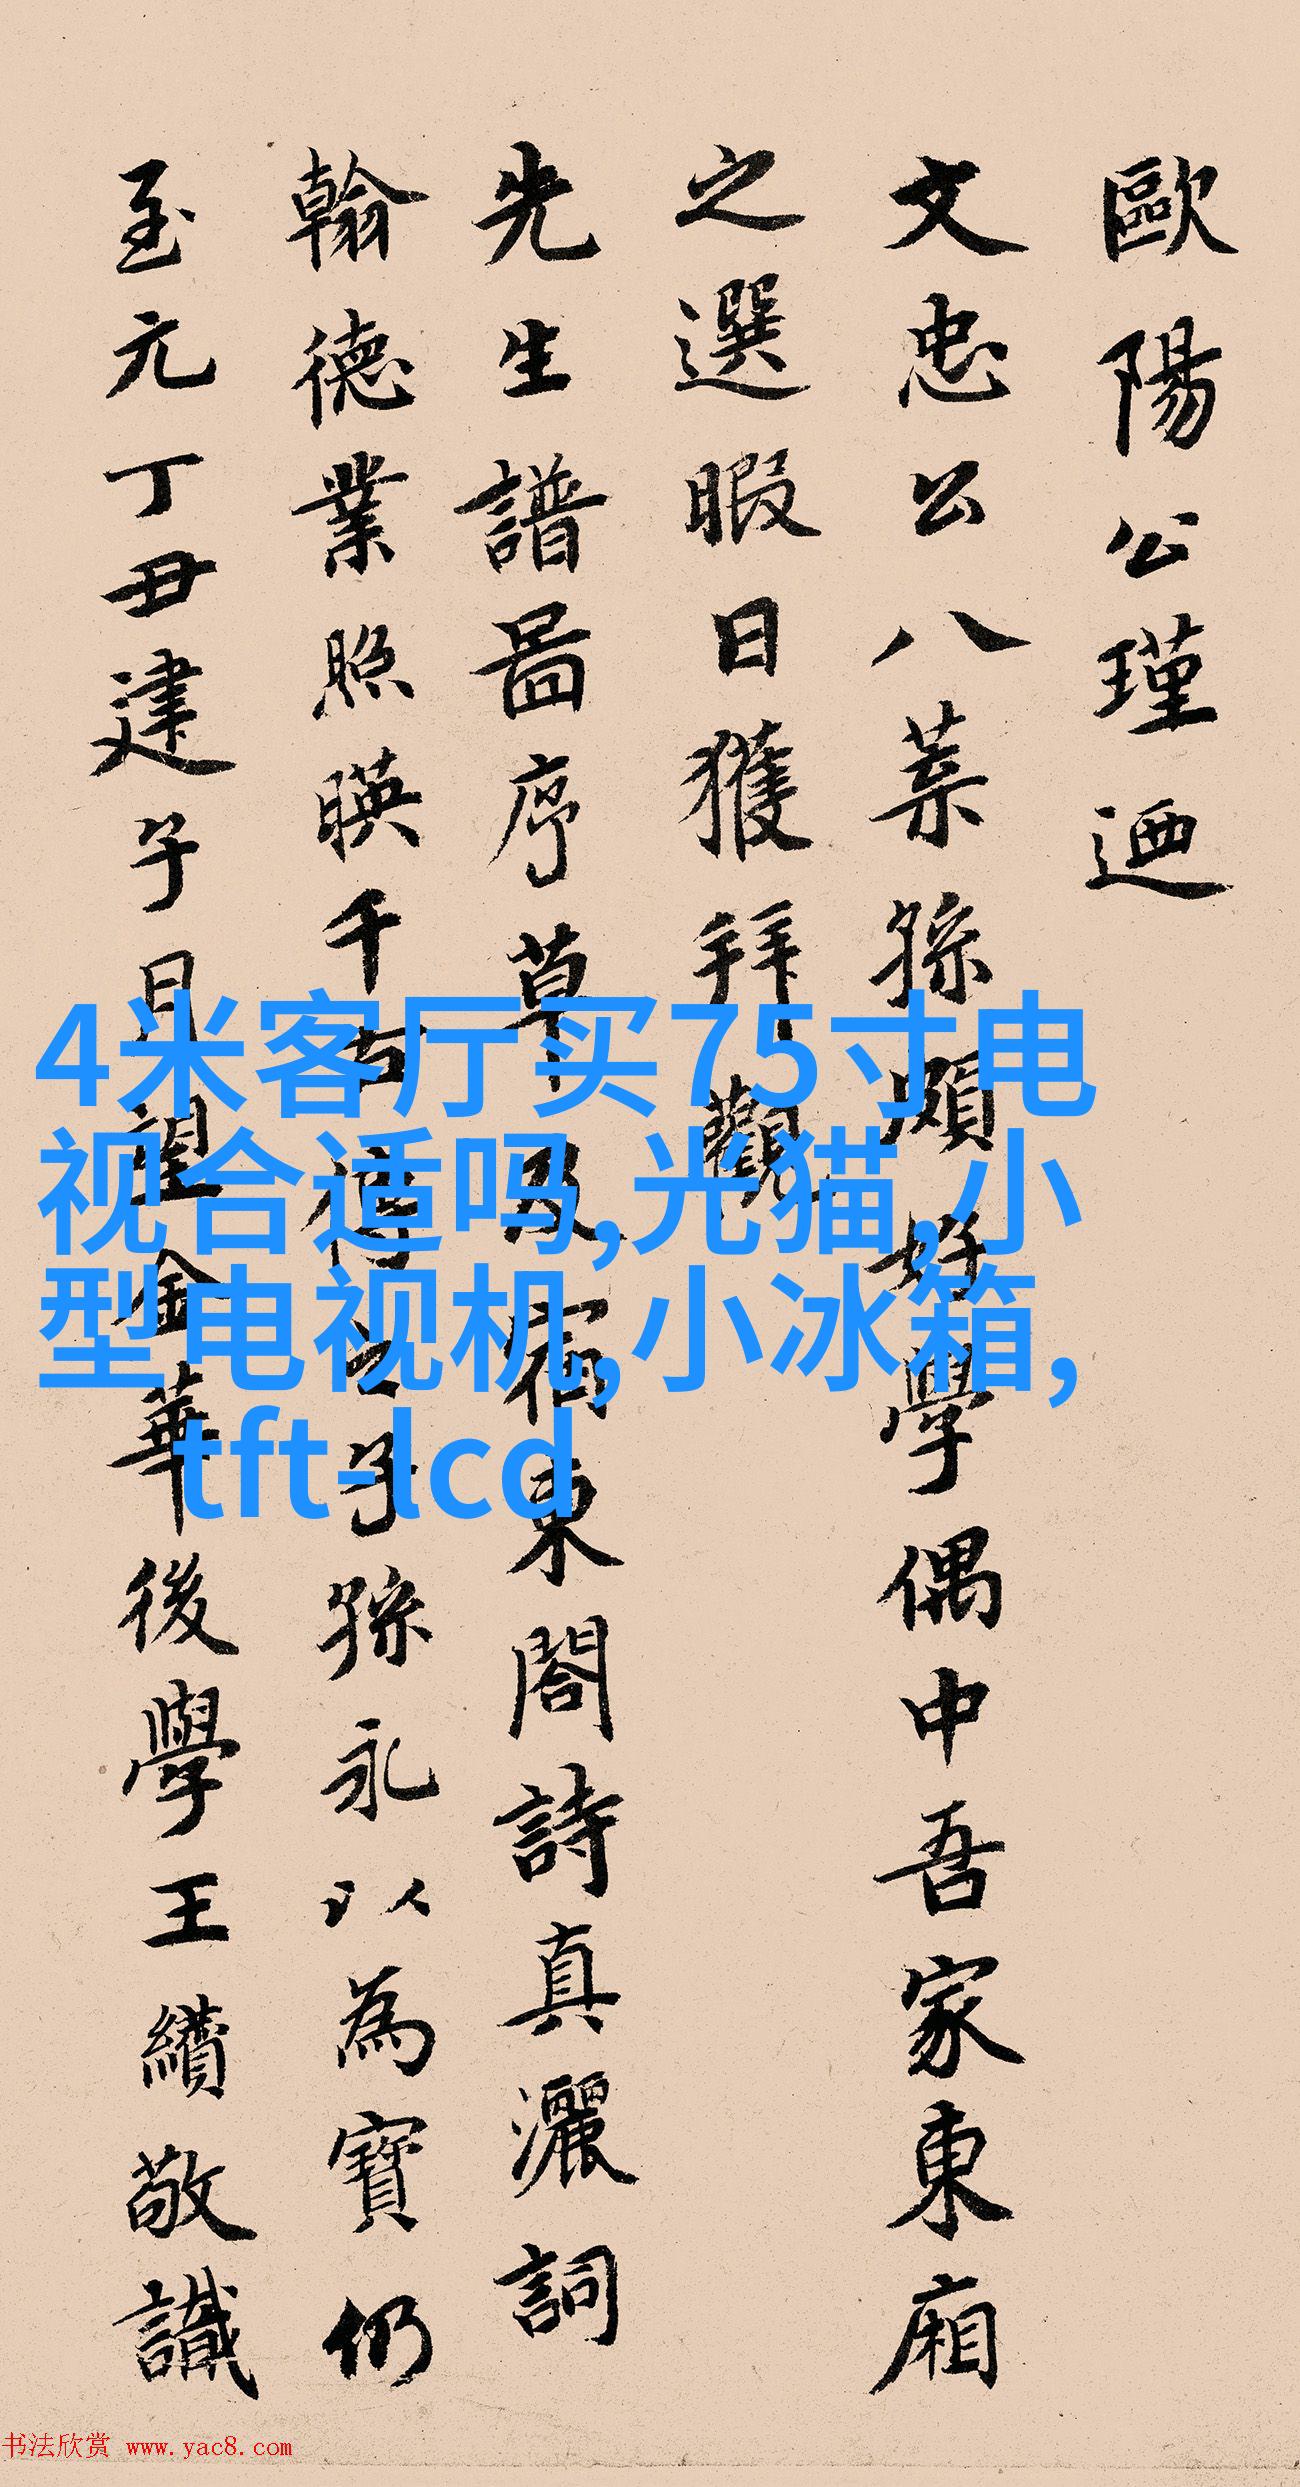 歐陽公瑾迺
文忠公八葉孫頗好學偶中吾家東廂
之選暇日獲拜觀
先生譜圖序草及宿東閣詩真灑詞
翰德業照暎千古傳之子孫永以為寶仍
至元丁丑建子月望金華後學王績敬識
4米客厅买75寸电
视合适吗,光猫,小
型电视机,小冰箱,
tft-lcd
书法欣赏 www.yac8.com